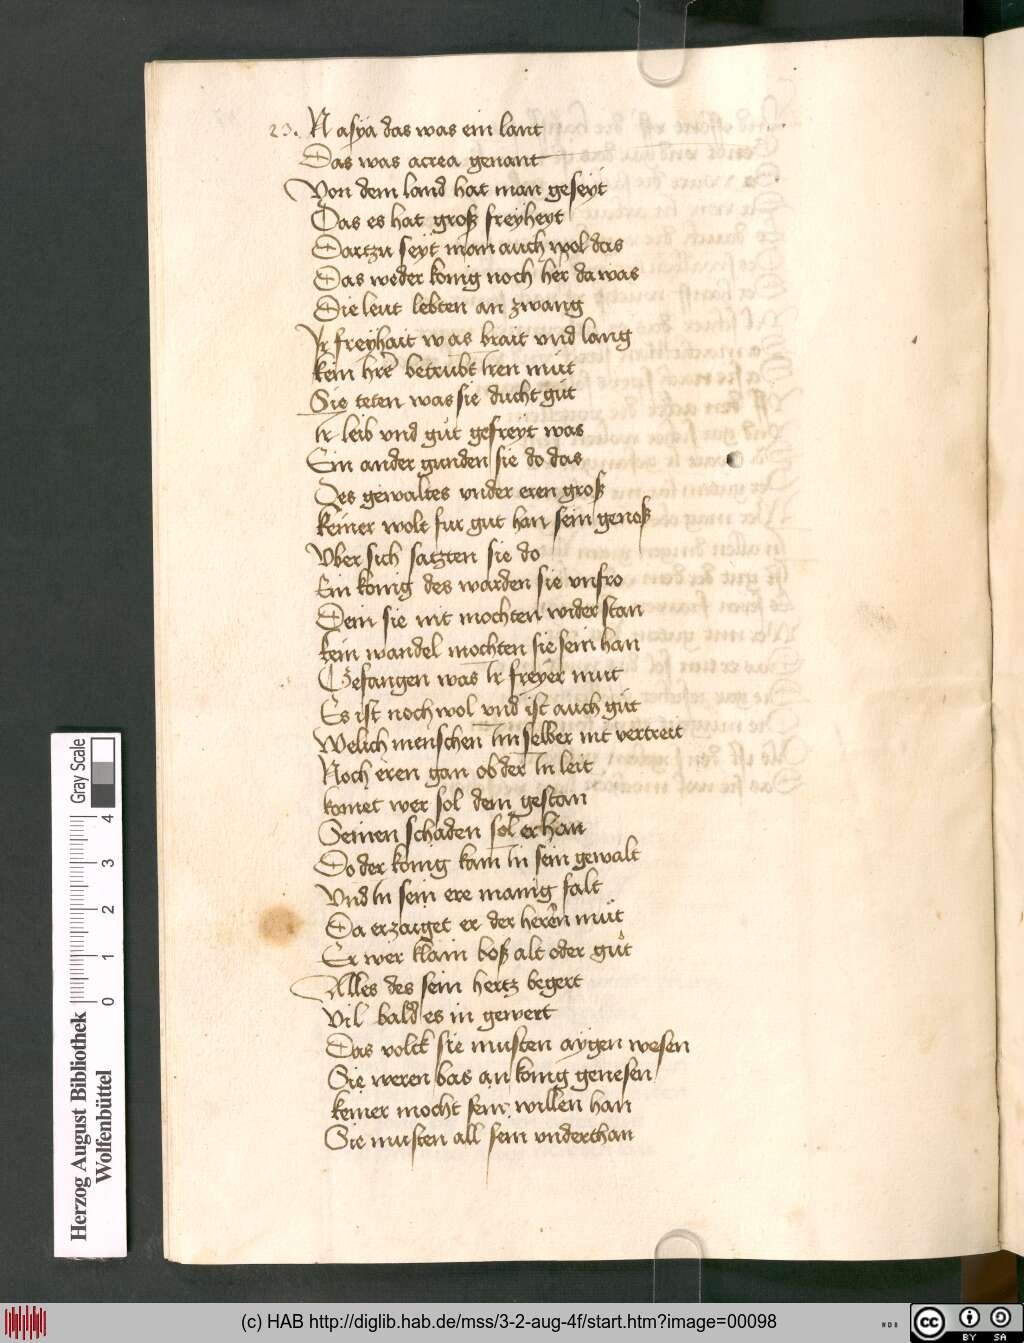 23. N asya das was ein lant
Das was acrea genant
Von dem land hat man geseyt
Das es hat groß freyheyt
Dartzu seyt man auch wol das
Das weder konig noch her da was
Die leut lebten an zwang
Ir freyhait was brait vnd lang
kein hre betrubt Iren mut
Sie teten was sie ducht gut
Ir leib vnd gut gefreyt was
Ein ander gunden sie do das
Des gewaltes vnder eren groß
keiner wolt fur gut han sein genoß
Vber sich satzten sie do
Ein konig des warden sie vnfro
Dem sie nit mochten wider stan
kein wandel mochten sie sein han
Gefangen was Ir freyer mut
Es ist noch wol vnd ist auch gut
Welich menschen Im selber nit vertreit
Noch eren gan ob der In leit
komet wer sol dem gestan
Seinen schaden sol er han
Do der konig kam In sein gewalt
Vnd In sein ere manig falt
Da erzaiget er der heren mut
Er wer klain boß alt oder gut
Alles des sein hertz begert
Vil bald es in gewert
Das volck sie musten aygen wesen
Sie weren bas an konig genesen
keiner mocht sein willen han
Sie musten all sein vnderthan
Gray Scale
4
3
2
1
0
Herzog August Bibliothek
Wolfenbüttel
(c) HAB http://diglib.hab.de/mss/3-2-aug-4f/start.htm?image=00098
WDB
cc
BY SA